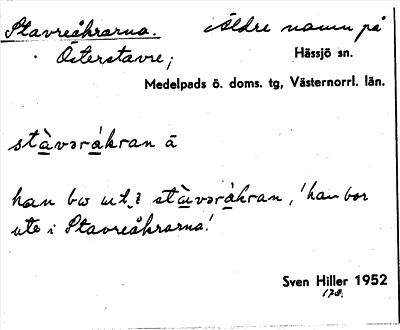 Stavreåkrarna. Äldre namn på
Österstavre; Hässjö sn.
Medelpads ö. doms. tg, Västernorrl. län.
stàvərákran ā
han bor ut i stàvərákran, 'han bor
ute i Stavreåkrarna.'
Sven Hiller 1952